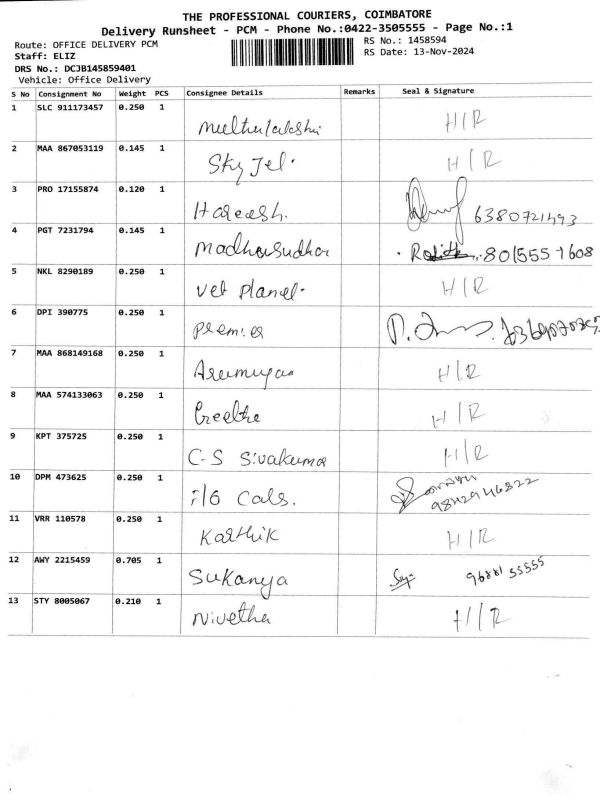 THE PROFESSIONAL COURIERS, COIMBATORE
Delivery Runsheet - PCM - Phone No.:0422-3505555 - Page No.:1
Route: OFFICE DELIVERY PCM
RS No.: 1458594
Staff: ELIZ
RS Date: 13-Nov-2024
DRS No.: DCJB145859401
Vehicle: Office Delivery
S No Consignment No Weight PCS Consignee Details Remarks Seal & Signature
1 SLC 911173457 0.250 1 H/R
2 MAA 867053119 0.145 1 Sky Jel. H/R
3 PRO 17155874 0.120 1 Hareesh. 6380721493
4 PGT 7231794 0.145 1 Madhusudhar 8015551608
5 NKL 8290189 0.250 1 Vet Planet. H/R
6 DPI 390775 0.250 1 Premier
7 MAA 868149168 0.250 1 Arumugam H/R
8 MAA 574133063 0.250 1 Geetha H/R
9 KPT 375725 0.250 1 C-S Sivakumar H/R
10 DPM 473625 0.250 1 Cals. 9842946822
11 VRR 110578 0.250 1 Karthik H/R
12 AWY 2215459 0.705 1 Sukanya 9688155555
13 STY 8005067 0.210 1 Nivetha H/R